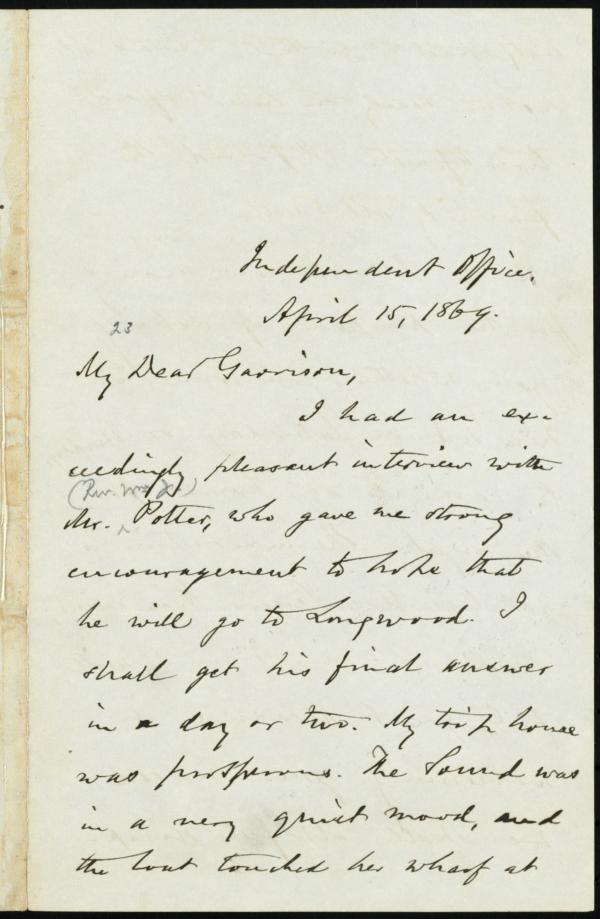 Independent Office.
April 15, 1869.
23
My Dear Garrison,
I had an ex=
ceedingly pleasant interview with
(Rev. Wm. J.)
Mr. ^ Potter, who gave me strong
encouragement to hope that
he will go to Longwood. I
shall get his final answer
in a day or two. My trip home
was prosperous. The Sound was
in a very quiet mood, and
the boat touched her wharf at